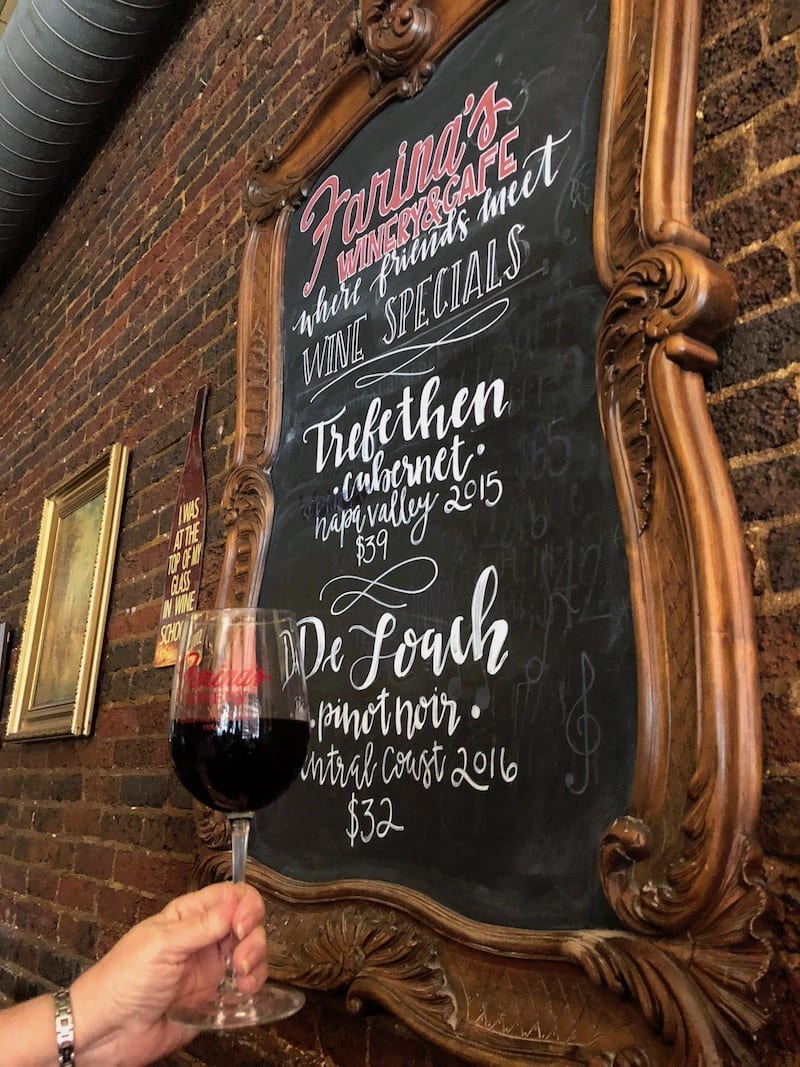 Farina's
WINERY&CAFE
where friends meet
WINE SPECIALS
Trefethen
·cabernet·
napa valley 2015
$39
De Loach
·pinot noir·
ntral Coast 2016
$32
I WAS
AT THE
TOP OF MY
GLASS
IN WINE
SCHO
Farina's